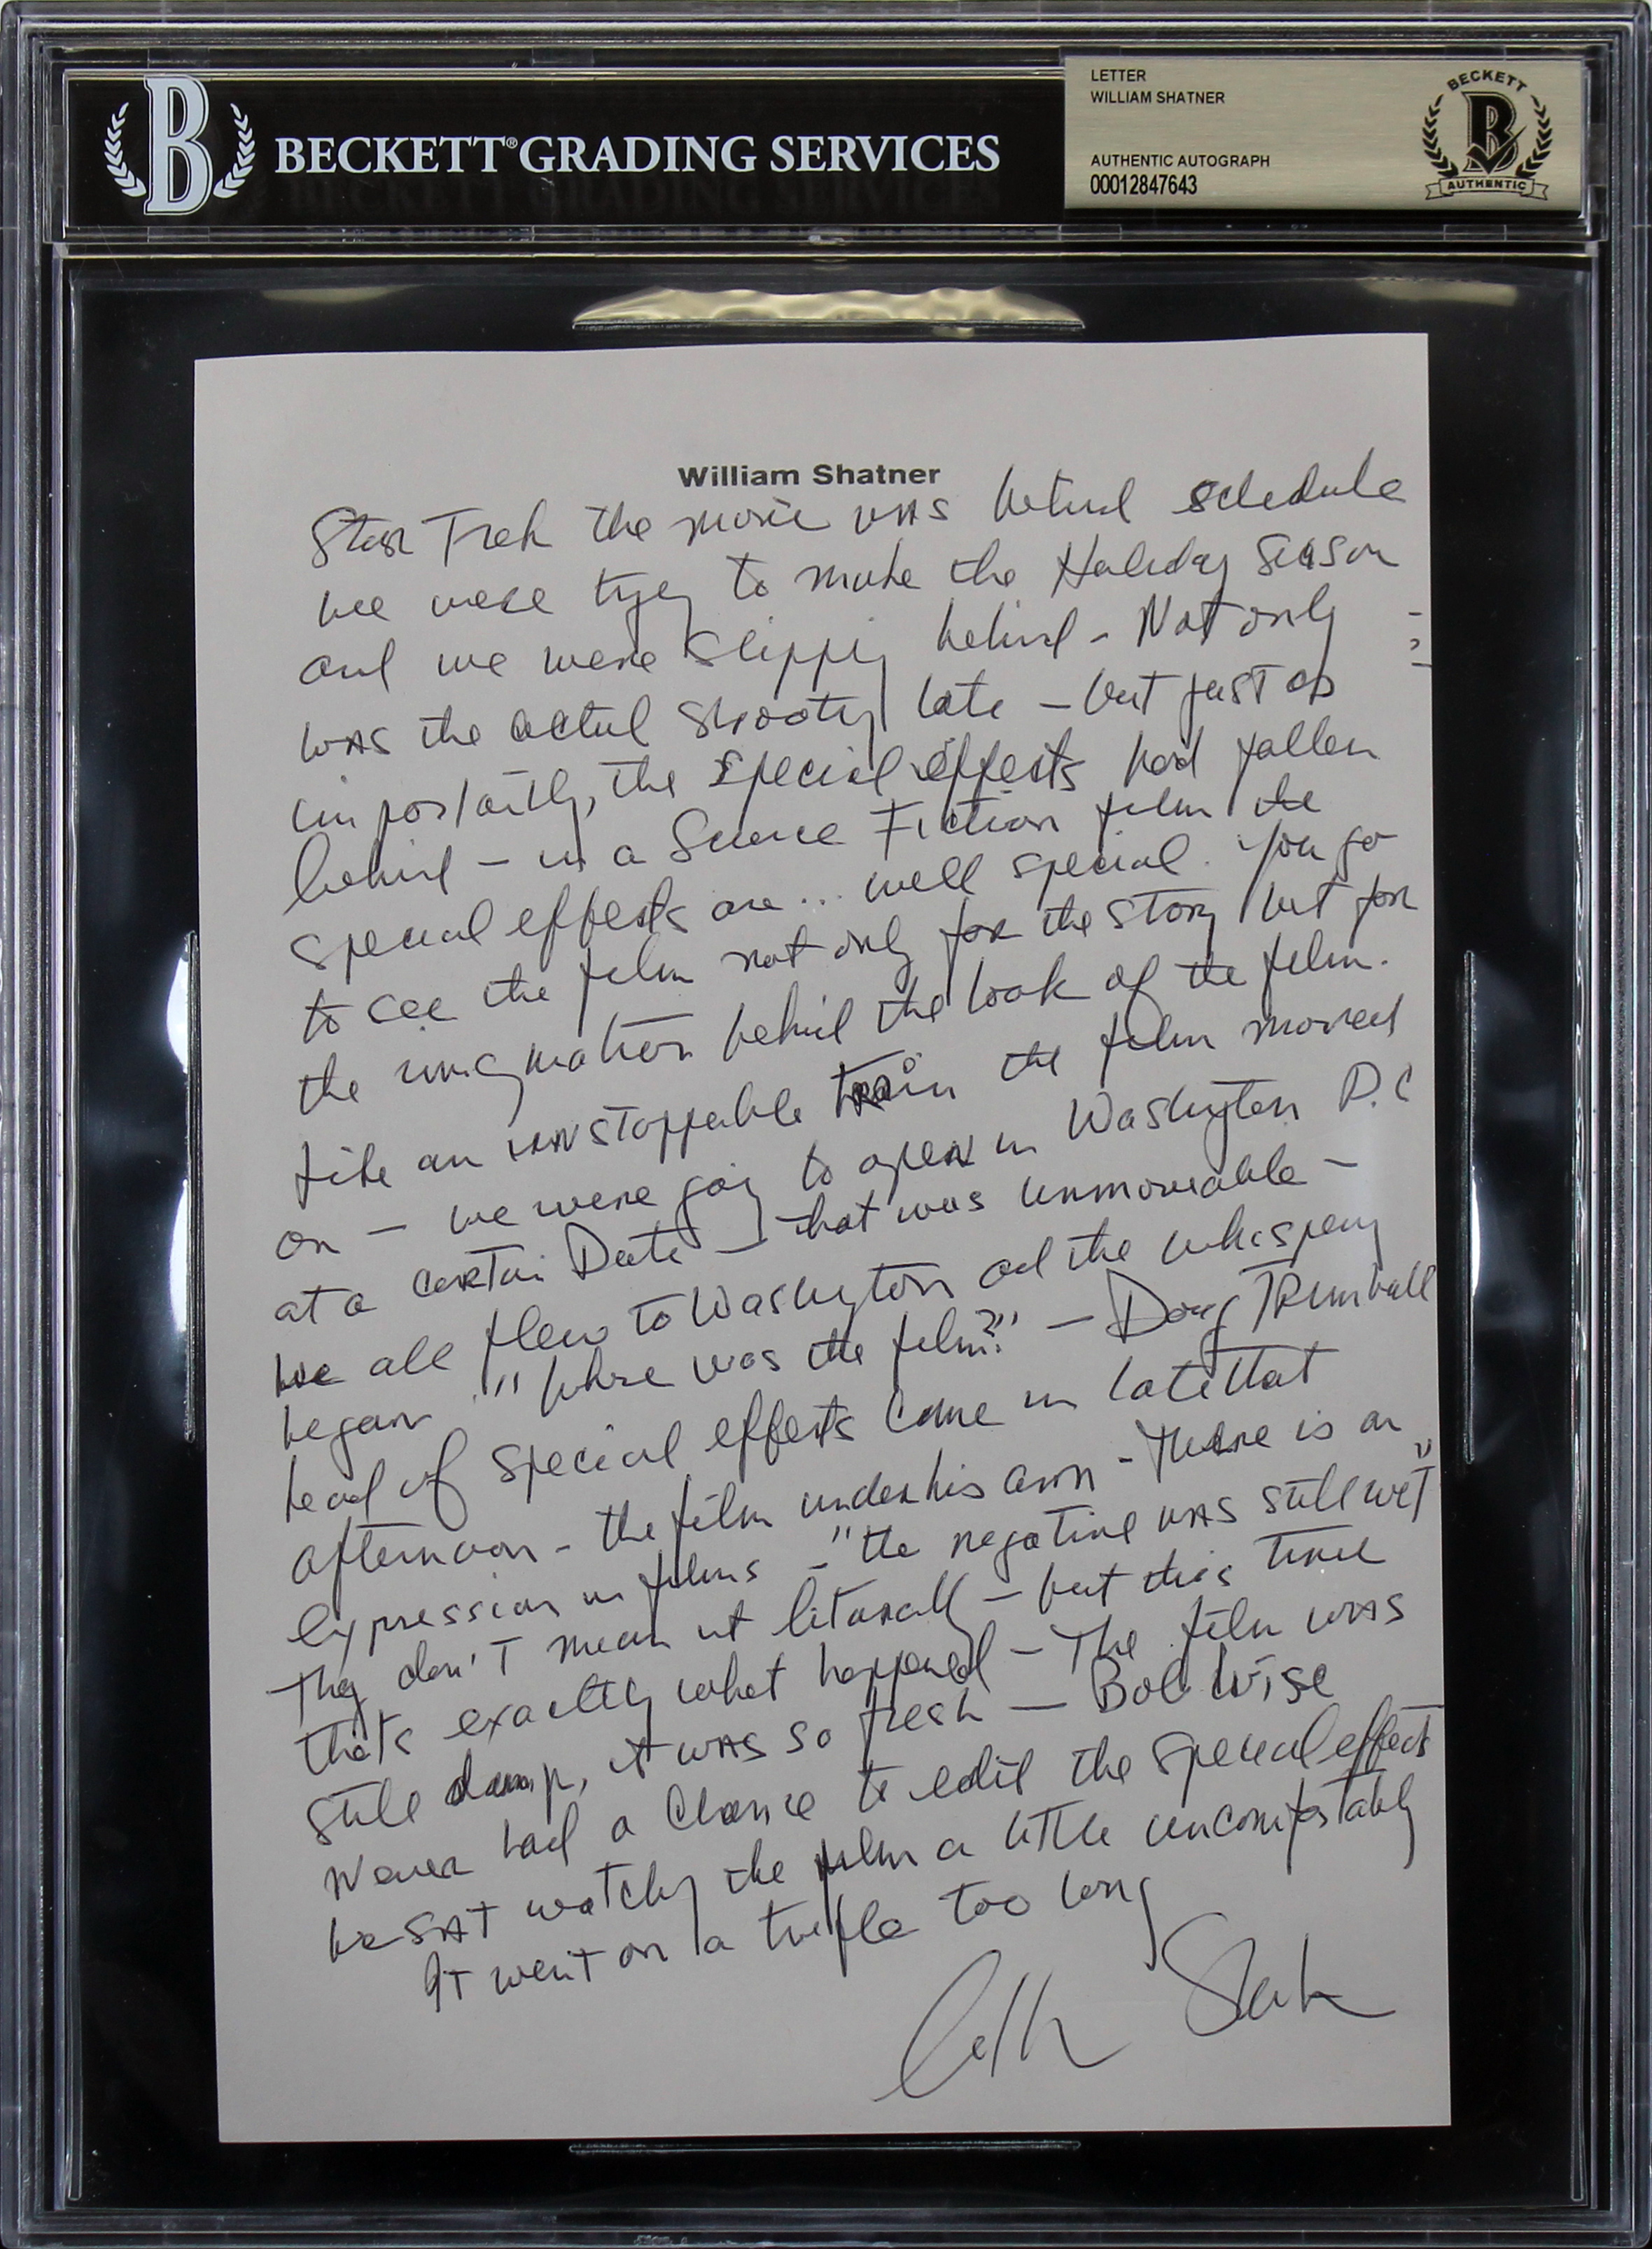 BECKETT® GRADING SERVICES
LETTER
WILLIAM SHATNER
AUTHENTIC AUTOGRAPH
00012847643
BECKETT
AUTHENTIC
William Shatner
Star Trek the movie was behind schedule
we were trying to make the Holiday season
and we were slipping behind - Not only
was the actual shooting late - but just as
importantly, the special effects had fallen
behind - in a Science Fiction film the
special effects are... well special. You go
to see the film not only for the story but for
the imagination behind the look of the film.
Like an unstoppable train the film moved
on - we were going to open in Washington D.C
at a certain Date - that was unmoveable -
We all flew to Washington and the whispering
began "where was the film?" - Doug Trumbull
head of special effects came in late that
afternoon - the film under his arm - There is an
expression in films - "the negative was still wet"
They don't mean it literally - but this time
that's exactly what happened - The film was
still damp, it was so fresh - Bob Wise
never had a chance to edit the special effects
we sat watching the film a little uncomfortably
It went on a trifle too long